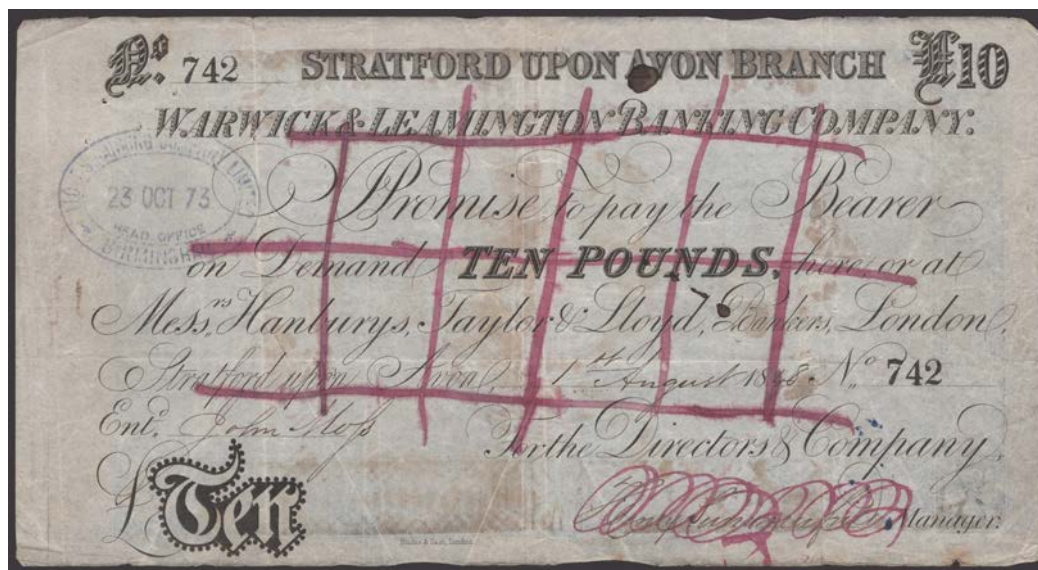 No. 742 STRATFORD UPON AVON BRANCH £10
WARWICK & LEAMINGTON BANKING COMPANY.
LLOYDS BANKING COMPANY LIMITED
23 OCT 73
HEAD OFFICE
BIRMINGHAM
I Promise to pay the Bearer
on Demand TEN POUNDS, here or at
Messrs Hanburys, Taylor & Lloyd, Bankers, London.
Stratford upon Avon, 1st August 1848 No. 742
Ent. John Moss
For the Directors & Company,
£ Ten
Manager.